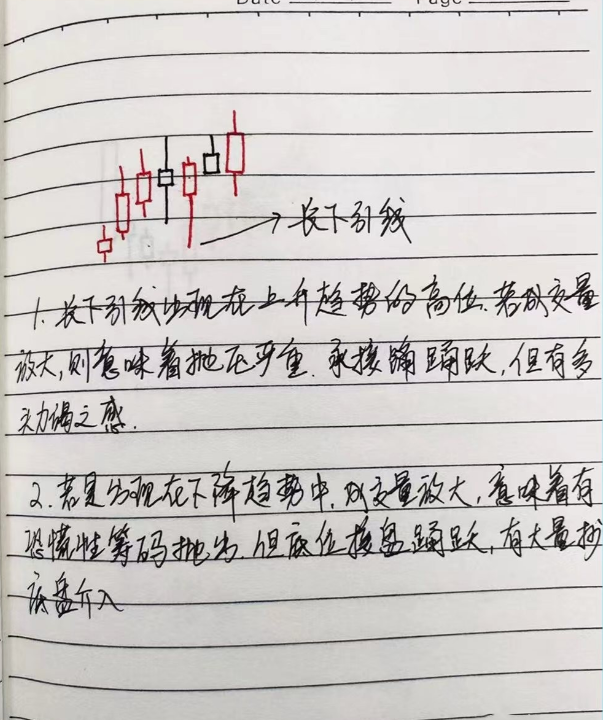 Date
Page
长下引线
1. 长下引线出现在上升趋势的高位.若成交量
放大,则意味着抛压严重.承接踊踊跃,但有多
头力竭之感.
2.若是出现在下降趋势中,成交量放大,意味着有
恐慌性筹码抛出.但底位接盘踊跃,有大量抄
底盘介入